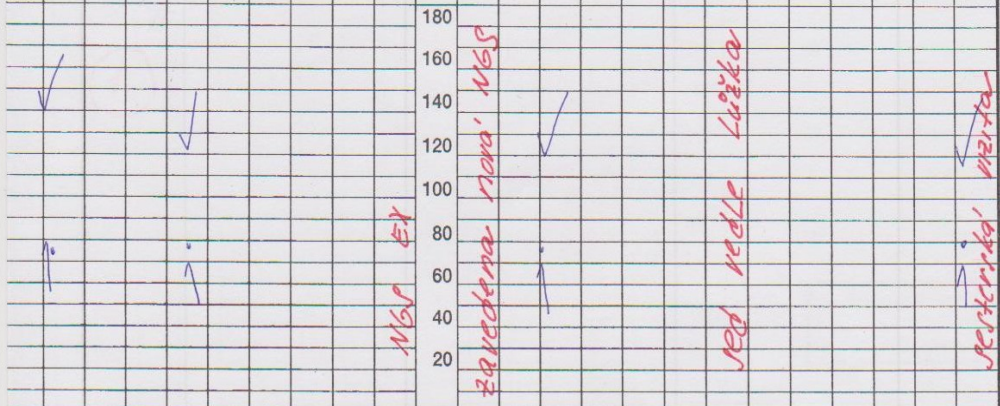 NGS EX
180
160
140
120
100
80
60
40
20
zavedena nová NGS
sed vedle lůžka
sesterská vizita